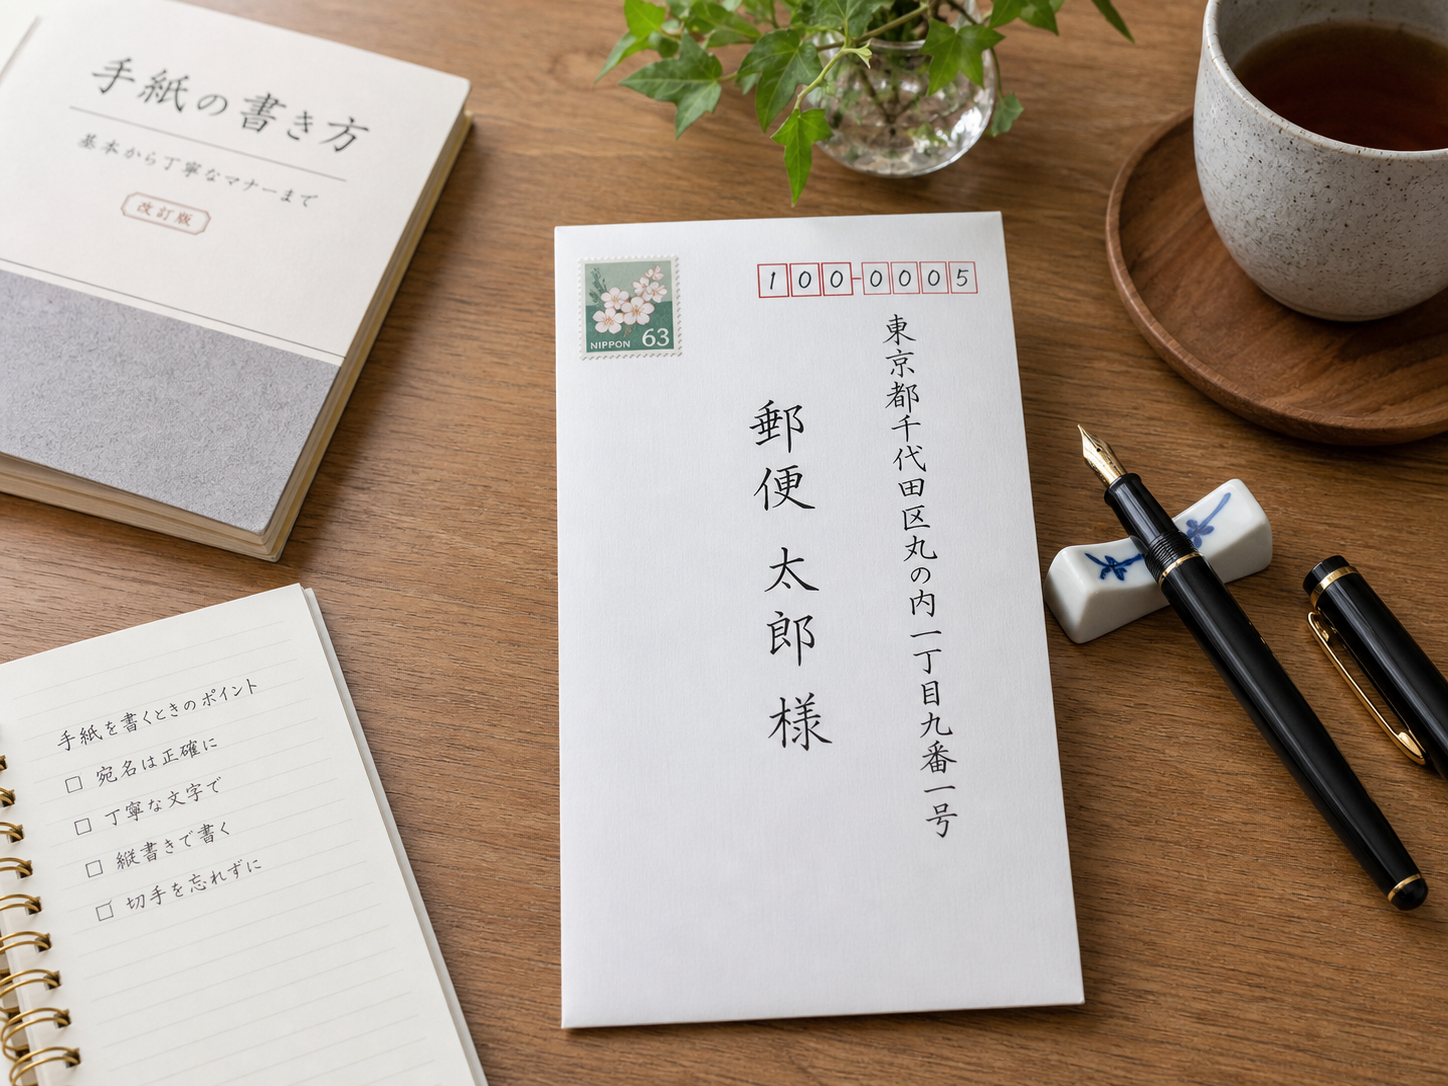 手紙の書き方
基本から丁寧なマナーまで
改訂版
NIPPON 63
100-0005
東京都千代田区丸の内一丁目九番一号
郵便 太郎 様
手紙を書くときのポイント
□ 宛名は正確に
□ 丁寧な文字で
□ 縦書きで書く
□ 切手を忘れずに